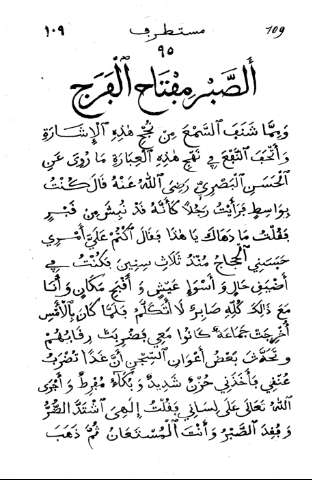 ١٠٩ مستطرف 109
٩٥
اَلصَّبْرُ مِفْتَاحُ الْفَرَجِ
وَمِمَّا شَنَّفَ السَّمْعَ مِن نُجْحِ هٰذِهِ الْإِشَارَةِ
وَأَتْحَفَ النَّفْعَ فِي نَهْجِ هٰذِهِ الْعِبَارَةِ مَا رُوِيَ عَنِ
الْحَسَنِ الْبَصْرِيِّ رَضِيَ اللّٰهُ عَنْهُ قَالَ كُنْتُ
بِوَاسِطَ فَرَأَيْتُ رَجُلًا كَأَنَّهُ قَدْ نُبِشَ مِن قَبْرٍ
فَقُلْتُ مَا دَهَاكَ يَا هٰذَا فَقَالَ اُكْتُمْ عَلَيَّ أَمْرِي
حَبَسَنِي الْحَجَّاجُ مُنْذُ ثَلَاثِ سِنِينَ فَكُنْتُ فِي
أَضْيَقِ حَالٍ وَأَسْوَإِ عَيْشٍ وَأَقْبَحِ مَكَانٍ وَأَنَا
مَعَ ذَالِكَ كُلِّهِ صَابِرٌ لَا أَتَكَلَّمُ فَلَمَّا كَانَ بِالْأَمْسِ
أُخْرِجَتْ جَمَاعَةٌ كَانُوا مَعِي فَضُرِبَتْ رِقَابُهُمْ
وَتَحَدَّثَ بَعْضُ أَعْوَانِ السِّجْنِ أَنَّ غَدًا تُضْرَبُ
عُنُقِي فَأَخَذَنِي حُزْنٌ شَدِيدٌ وَبُكَاءٌ مُفْرِطٌ وَأَجْرَى
اللّٰهُ تَعَالَى عَلَى لِسَانِي فَقُلْتُ إِلٰهِي اشْتَدَّ الضُّرُّ
وَفُقِدَ الصَّبْرُ وَأَنْتَ الْمُسْتَعَانُ ثُمَّ ذَهَبَ